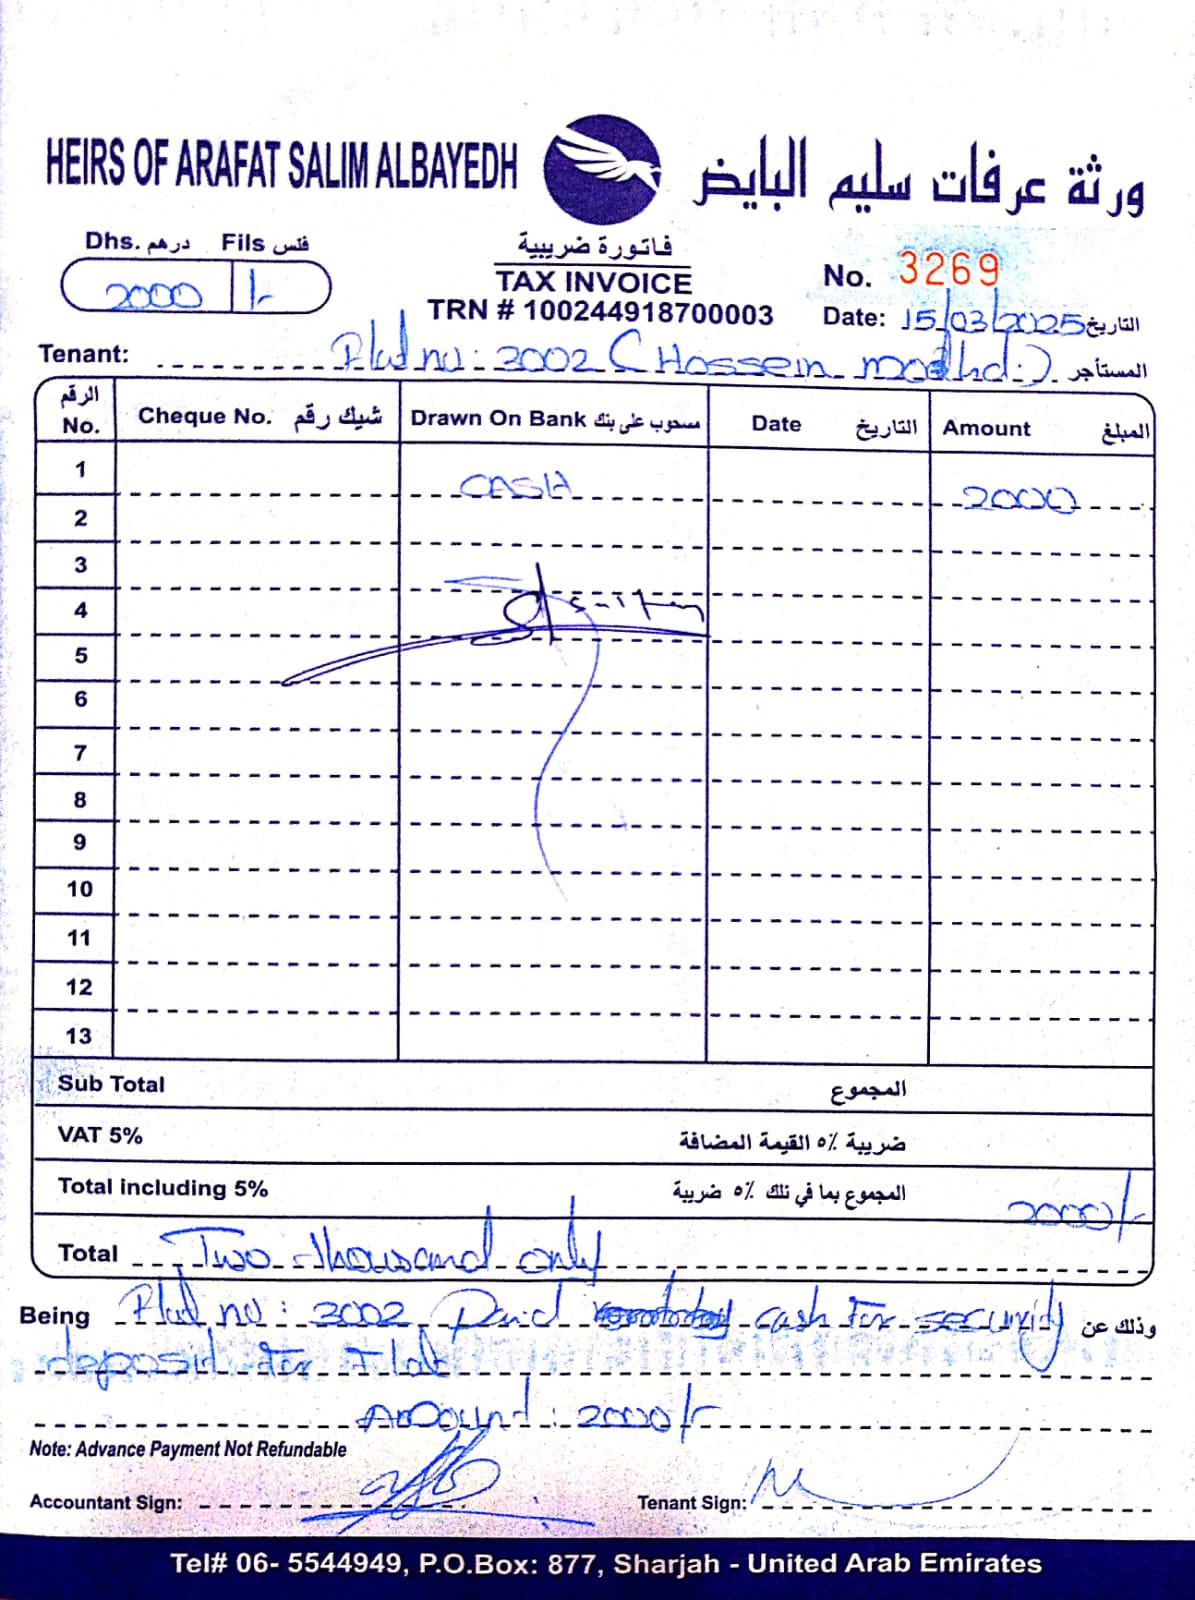 HEIRS OF ARAFAT SALIM ALBAYEDH ورثة عرفات سليم البايض
Dhs. درهم Fils فلس
2000 /-
فاتورة ضريبية
TAX INVOICE
TRN # 100244918700003
No. 3269
Date: 15/03/2025 التاريخ
Tenant: Flat no: 3002 (Hossein) المستأجر
الرقم No. Cheque No. شيك رقم Drawn On Bank مسحوب على بنك Date التاريخ Amount المبلغ
1 CASH 2000
2
3
4
5
6
7
8
9
10
11
12
13
Sub Total المجموع
VAT 5% ضريبة ٥٪ القيمة المضافة
Total including 5% المجموع بما في ذلك ٥٪ ضريبة 2000/-
Total Two thousand only
Being Flat no: 3002 Paid cash For security وذلك عن
deposit For Flat
Amount: 2000/-
Note: Advance Payment Not Refundable
Accountant Sign: Tenant Sign:
Tel# 06- 5544949, P.O.Box: 877, Sharjah - United Arab Emirates